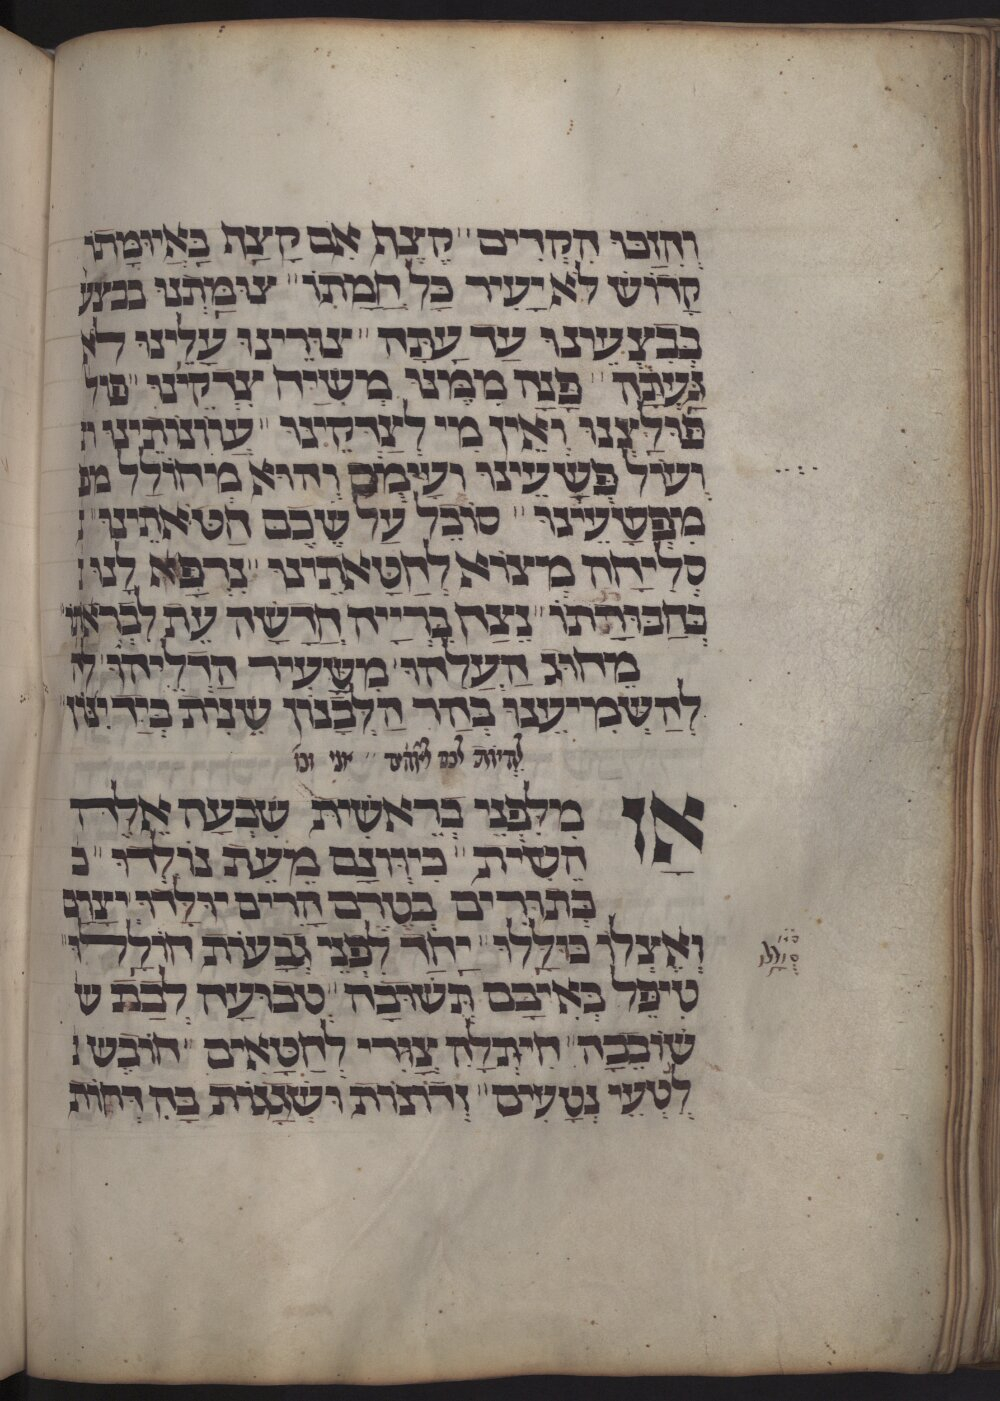 וְהַזַּבּוּ הִקְרִים ״ קָצַת אִם קָצַת בָּאֲיוּמָּתוֹ
קָדוֹשׁ לֹא יָעִיר כָּל חֲמָתוֹ ״ צוּמַּתְנוּ בבצע
בְּבִצְעֵינוּ עַד עָתָּה ״ צוּרֵינוּ עָלֵינוּ לא
נֶּעֶתָּה ״ פָּנָה מִמֶּנּוּ מְשִׁיחַ צִדְקֵינוּ ״ פול
פּוּלַּצְנוּ וְאֵין מִי לְצַדְּקֵינוּ ״ עֲוֹנוֹתֵינוּ ו
וְעוֹל פְּשָׁעֵינוּ וְהוּא מְחוֹלָל מפ
מִפְּשָׁעֵינוּ ״ סוֹבֵל עַל שֶׁכֶם חַטֹּאתֵינוּ ״
סְלִיחָה מְצוֹא לְחַטֹּאתֵינוּ ״ נִרְפָּא לָנוּ
בְּחַבּוּרָתוֹ ״ נֶצַח בְּרִיָּיה חֲדָשָׁה עֵת לִבְרֹאתוֹ
מֵחוּג הַעֲלֵהוּ מִשֵּׂעִיר הַדְלֵיהוּ ל
לְהַשְׁמִיעֵנוּ בְּהַר הַלְּבָנוֹן שֵׁנִית בְּיַד יִנּוֹן ״
להיות לכם לאלהים אני וכו
אָז מִלִּפְנֵי בְרֵאשִׁית שִׁבְעָה אֵלֶּה
הֵשִׁית ״ כִּיוְּונָם מֵעֵת נוֹלָדוּ ״ כ
כְּתוּרִים בְּטֶרֶם הָרִים יוּלָּדוּ ״ יצוּם
וְאֶצְלוֹ כּוּלָּלוּ ״ יַחַד לִפְנֵי גְבָעוֹת חוֹלָלוּ ״
טִיפֵּל בְּאֵיבָּם תְּשׁוּבָה ״ טְבוּעָה לְבַת ש
שׁוֹבֵבָה ״ חִיתְּלָהּ צוּרִי לְחַטָּאִים ״ חוֹבֶשׁ
לְטָעֵי נְטָעִים ״ זְדוֹנוֹת וּשְׁגָגוֹת בָּהּ דְּחוֹת